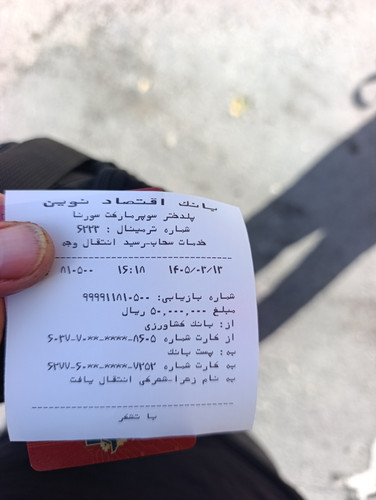 بانک اقتصاد نوین
پلدختر سوپرمارکت سورنا
شماره ترمینال : ۶۲۲۳
خدمات سحاب-رسید انتقال وجه
۱۴۰۵/۰۲/۱۳ ۱۶:۱۸ ۸۱۰۵۰۰
شماره بازیابی: ۹۹۹۹۱۱۸۱۰۵۰۰
مبلغ ۵۰,۰۰۰,۰۰۰ ریال
از: بانک کشاورزی
از کارت شماره ۶۰۳۷-۷۰**-****-۸۶۰۵
به: پست بانک
به کارت شماره ۶۲۷۷-۶۰**-****-۷۲۵۲
به نام زهرا-شهرکی انتقال یافت
با تشکر